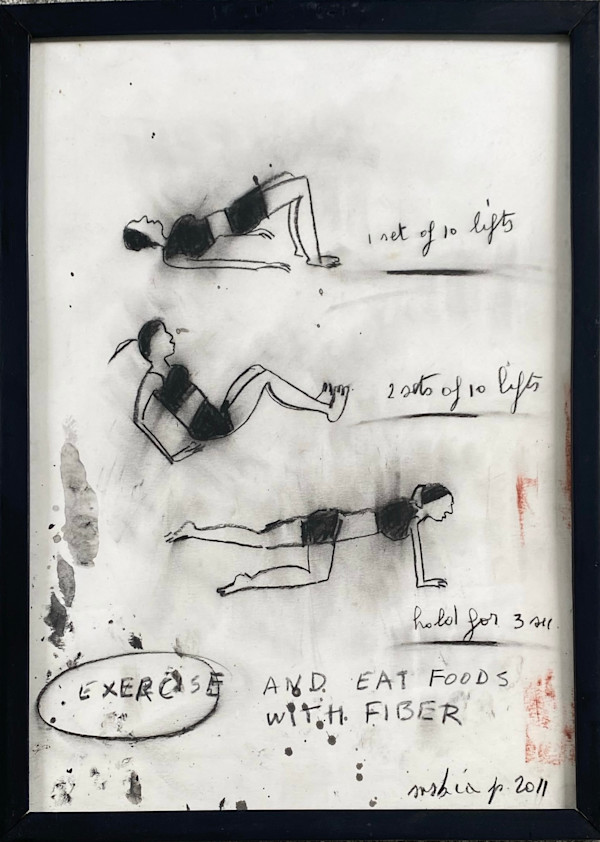 1 set of 10 lifts
2 sets of 10 lifts
hold for 3 sec
EXERCISE AND EAT FOODS
WITH FIBER
saskia p. 2011